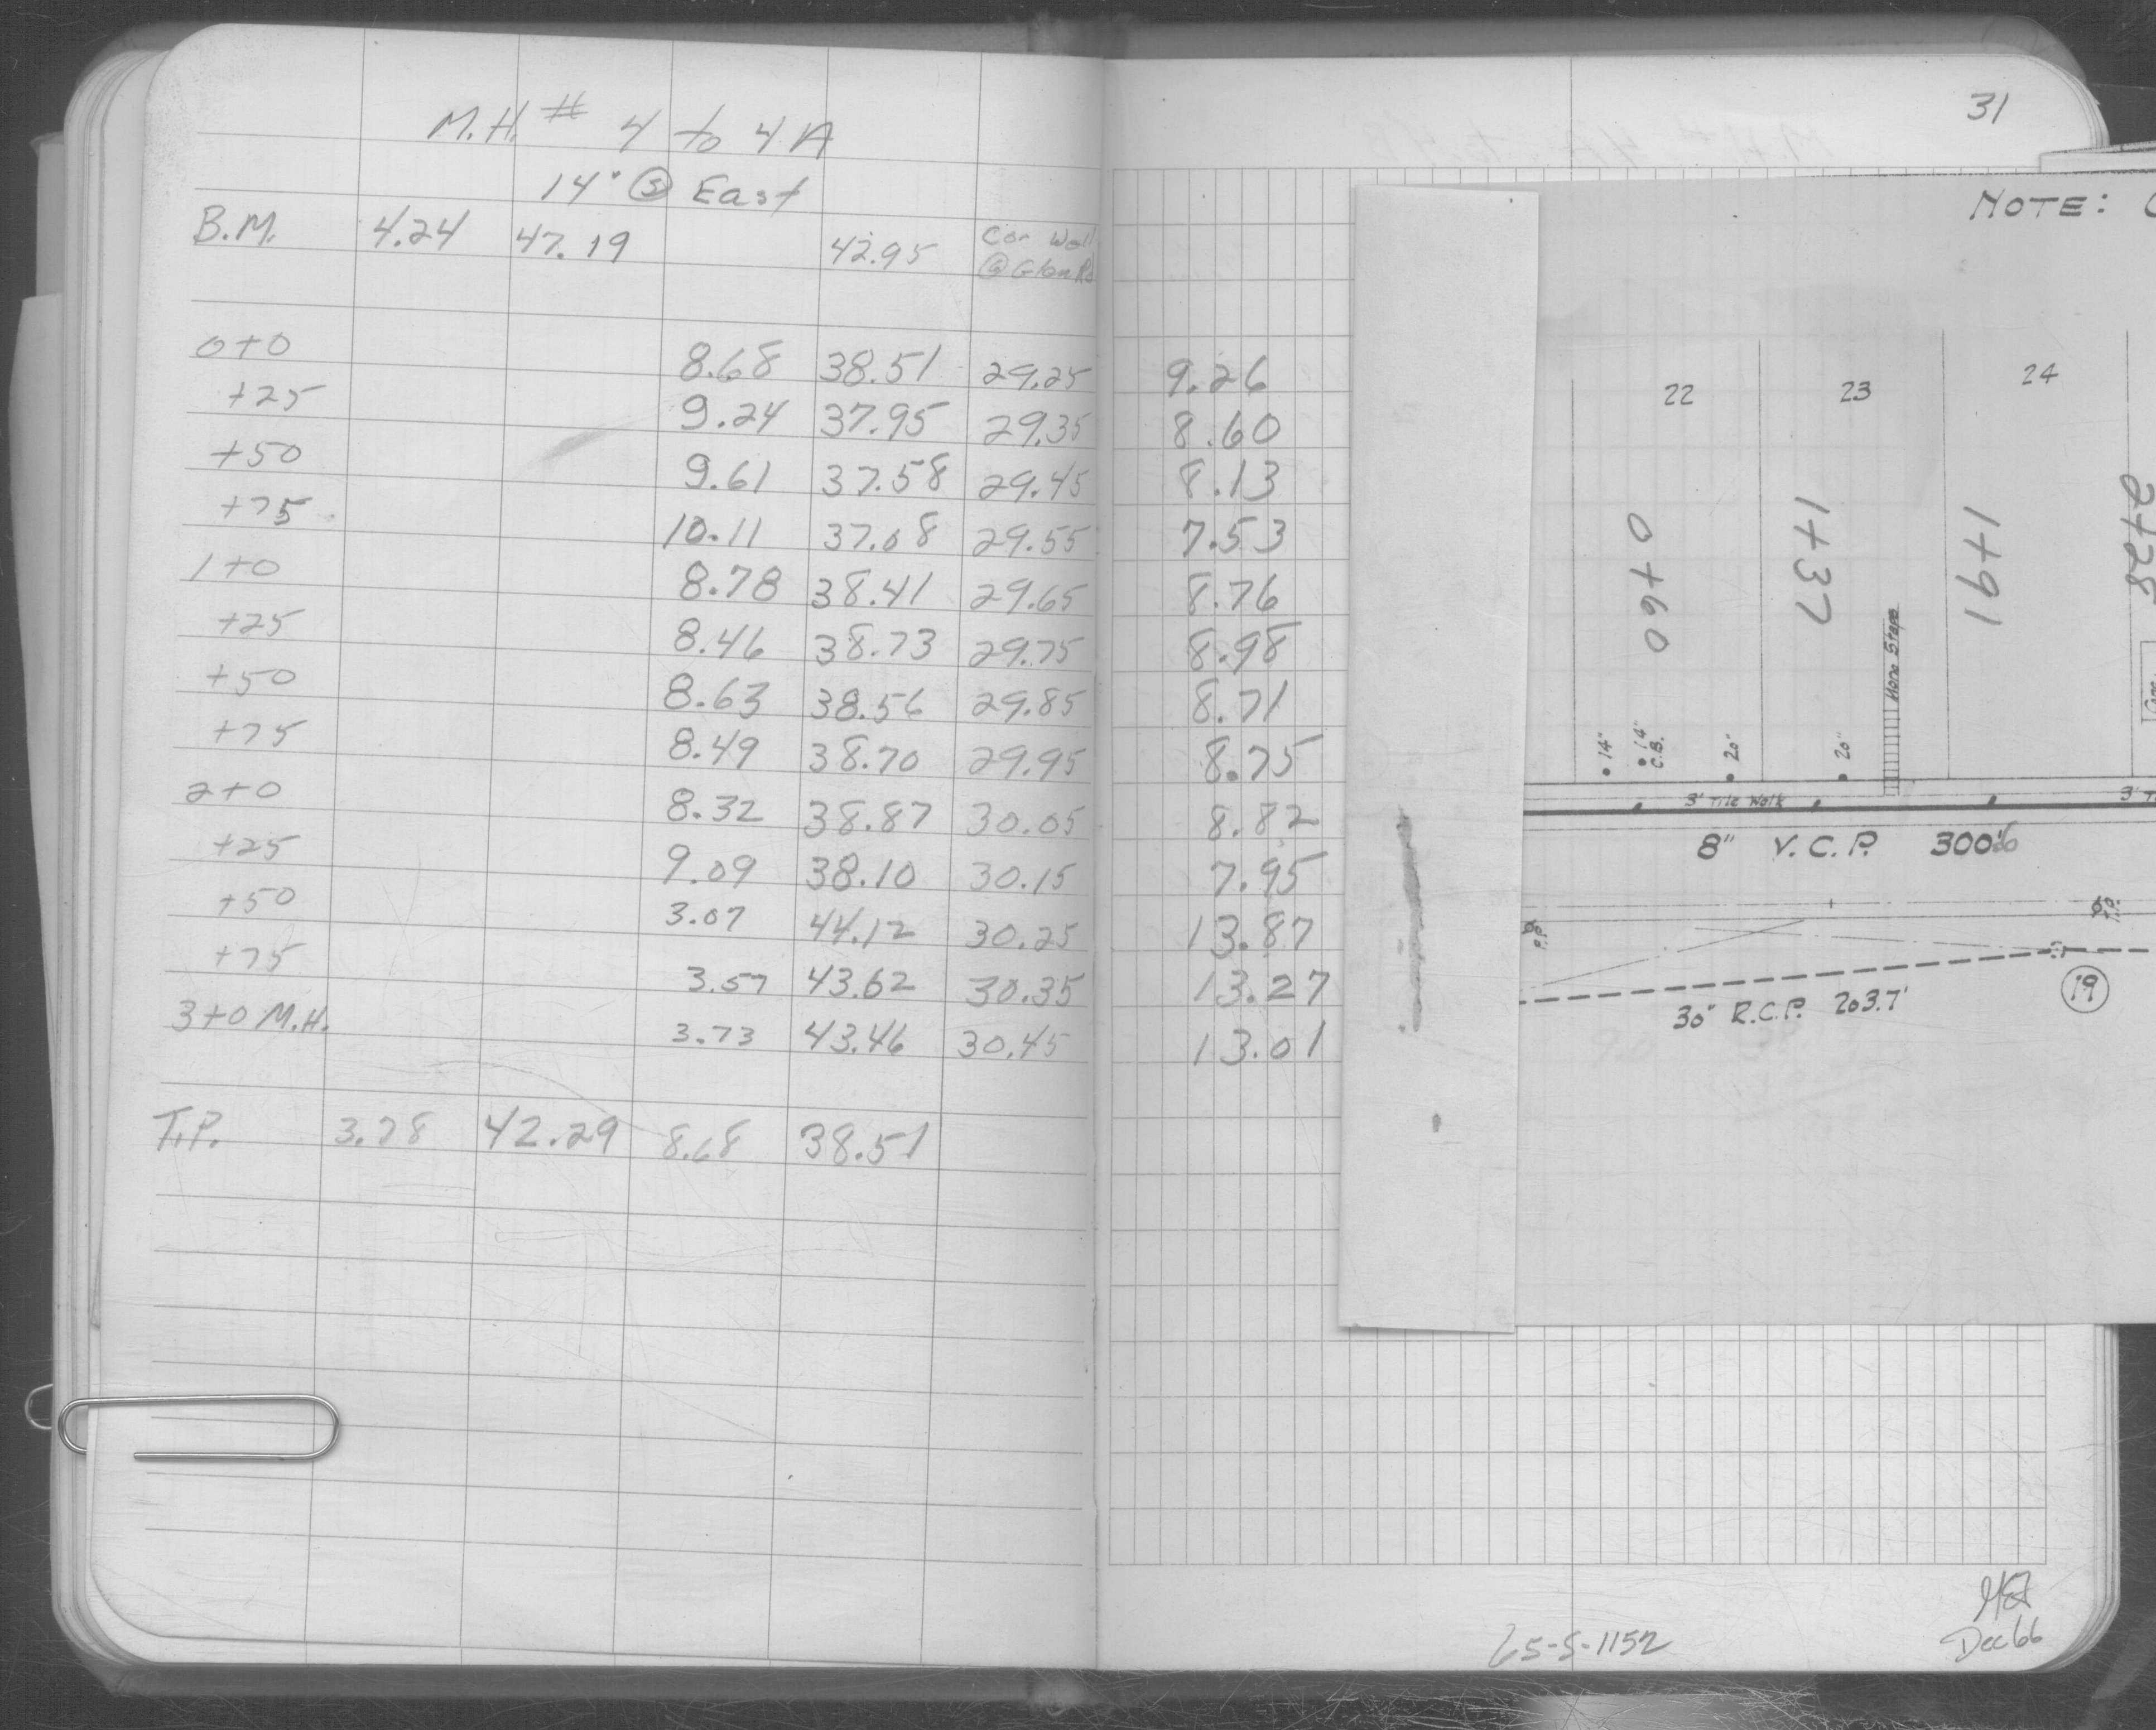 M.H.# 4 to 4A
14" @ East
B.M. 4.24 47.19 42.95 Cor Wall
@ Glen Rd
0+0 8.68 38.51 29.25 9.26
+25 9.24 37.95 29.35 8.60
+50 9.61 37.58 29.45 8.13
+75 10.11 37.08 29.55 7.53
1+0 8.78 38.41 29.65 8.76
+25 8.46 38.73 29.75 8.98
+50 8.63 38.56 29.85 8.71
+75 8.49 38.70 29.95 8.75
2+0 8.32 38.87 30.05 8.82
+25 9.09 38.10 30.15 7.95
+50 3.07 44.12 30.25 13.87
+75 3.57 43.62 30.35 13.27
3+0 M.H. 3.73 43.46 30.45 13.01
T.P. 3.78 42.29 8.68 38.51
31
NOTE:
22 23 24
0+60
1+37
1+91
2+28
Steps
14"
14"
C.B.
20"
20"
3' Tile Walk
3'
8" V.C.P. 300'
P.P.
P.P.
30" R.C.P. 203.7'
19
65-S-1152
Dec 66